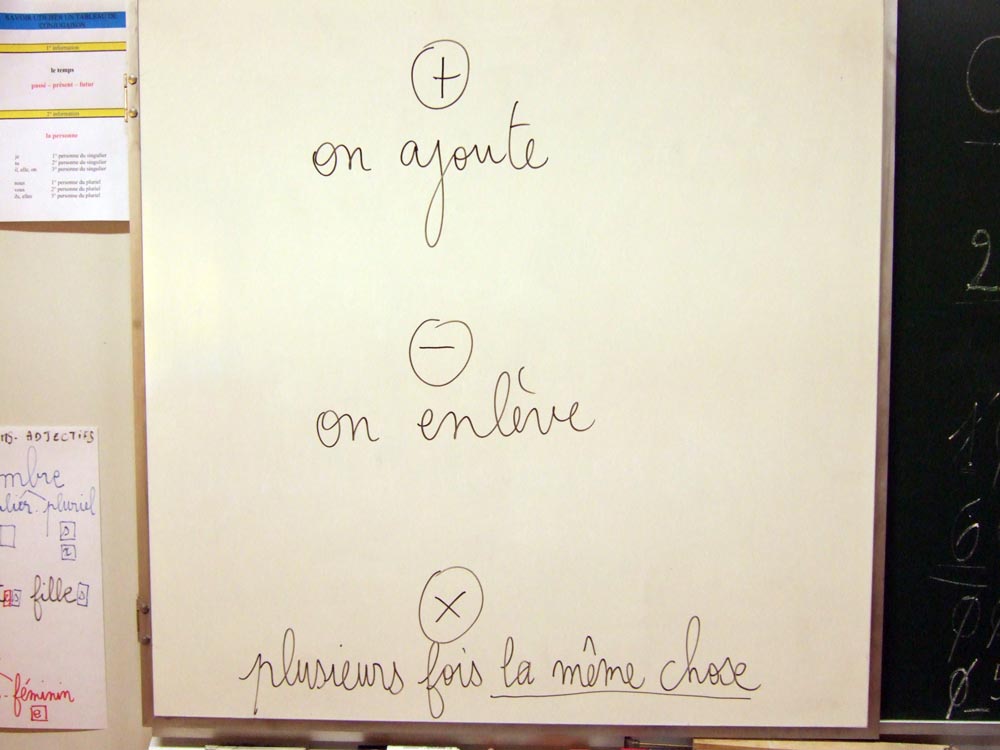 SAVOIR UTILISER UN TABLEAU DE
CONJUGAISON
1° information
le temps
passé – présent – futur
2° information
la personne
je 1° personne du singulier
tu 2° personne du singulier
il, elle, on 3° personne du singulier
nous 1° personne du pluriel
vous 2° personne du pluriel
ils, elles 3° personne du pluriel
+
on ajoute
−
on enlève
×
plusieurs fois la même chose
ADJECTIFS
mbre
pluriel
s
x
fille s
féminin
e
2
6